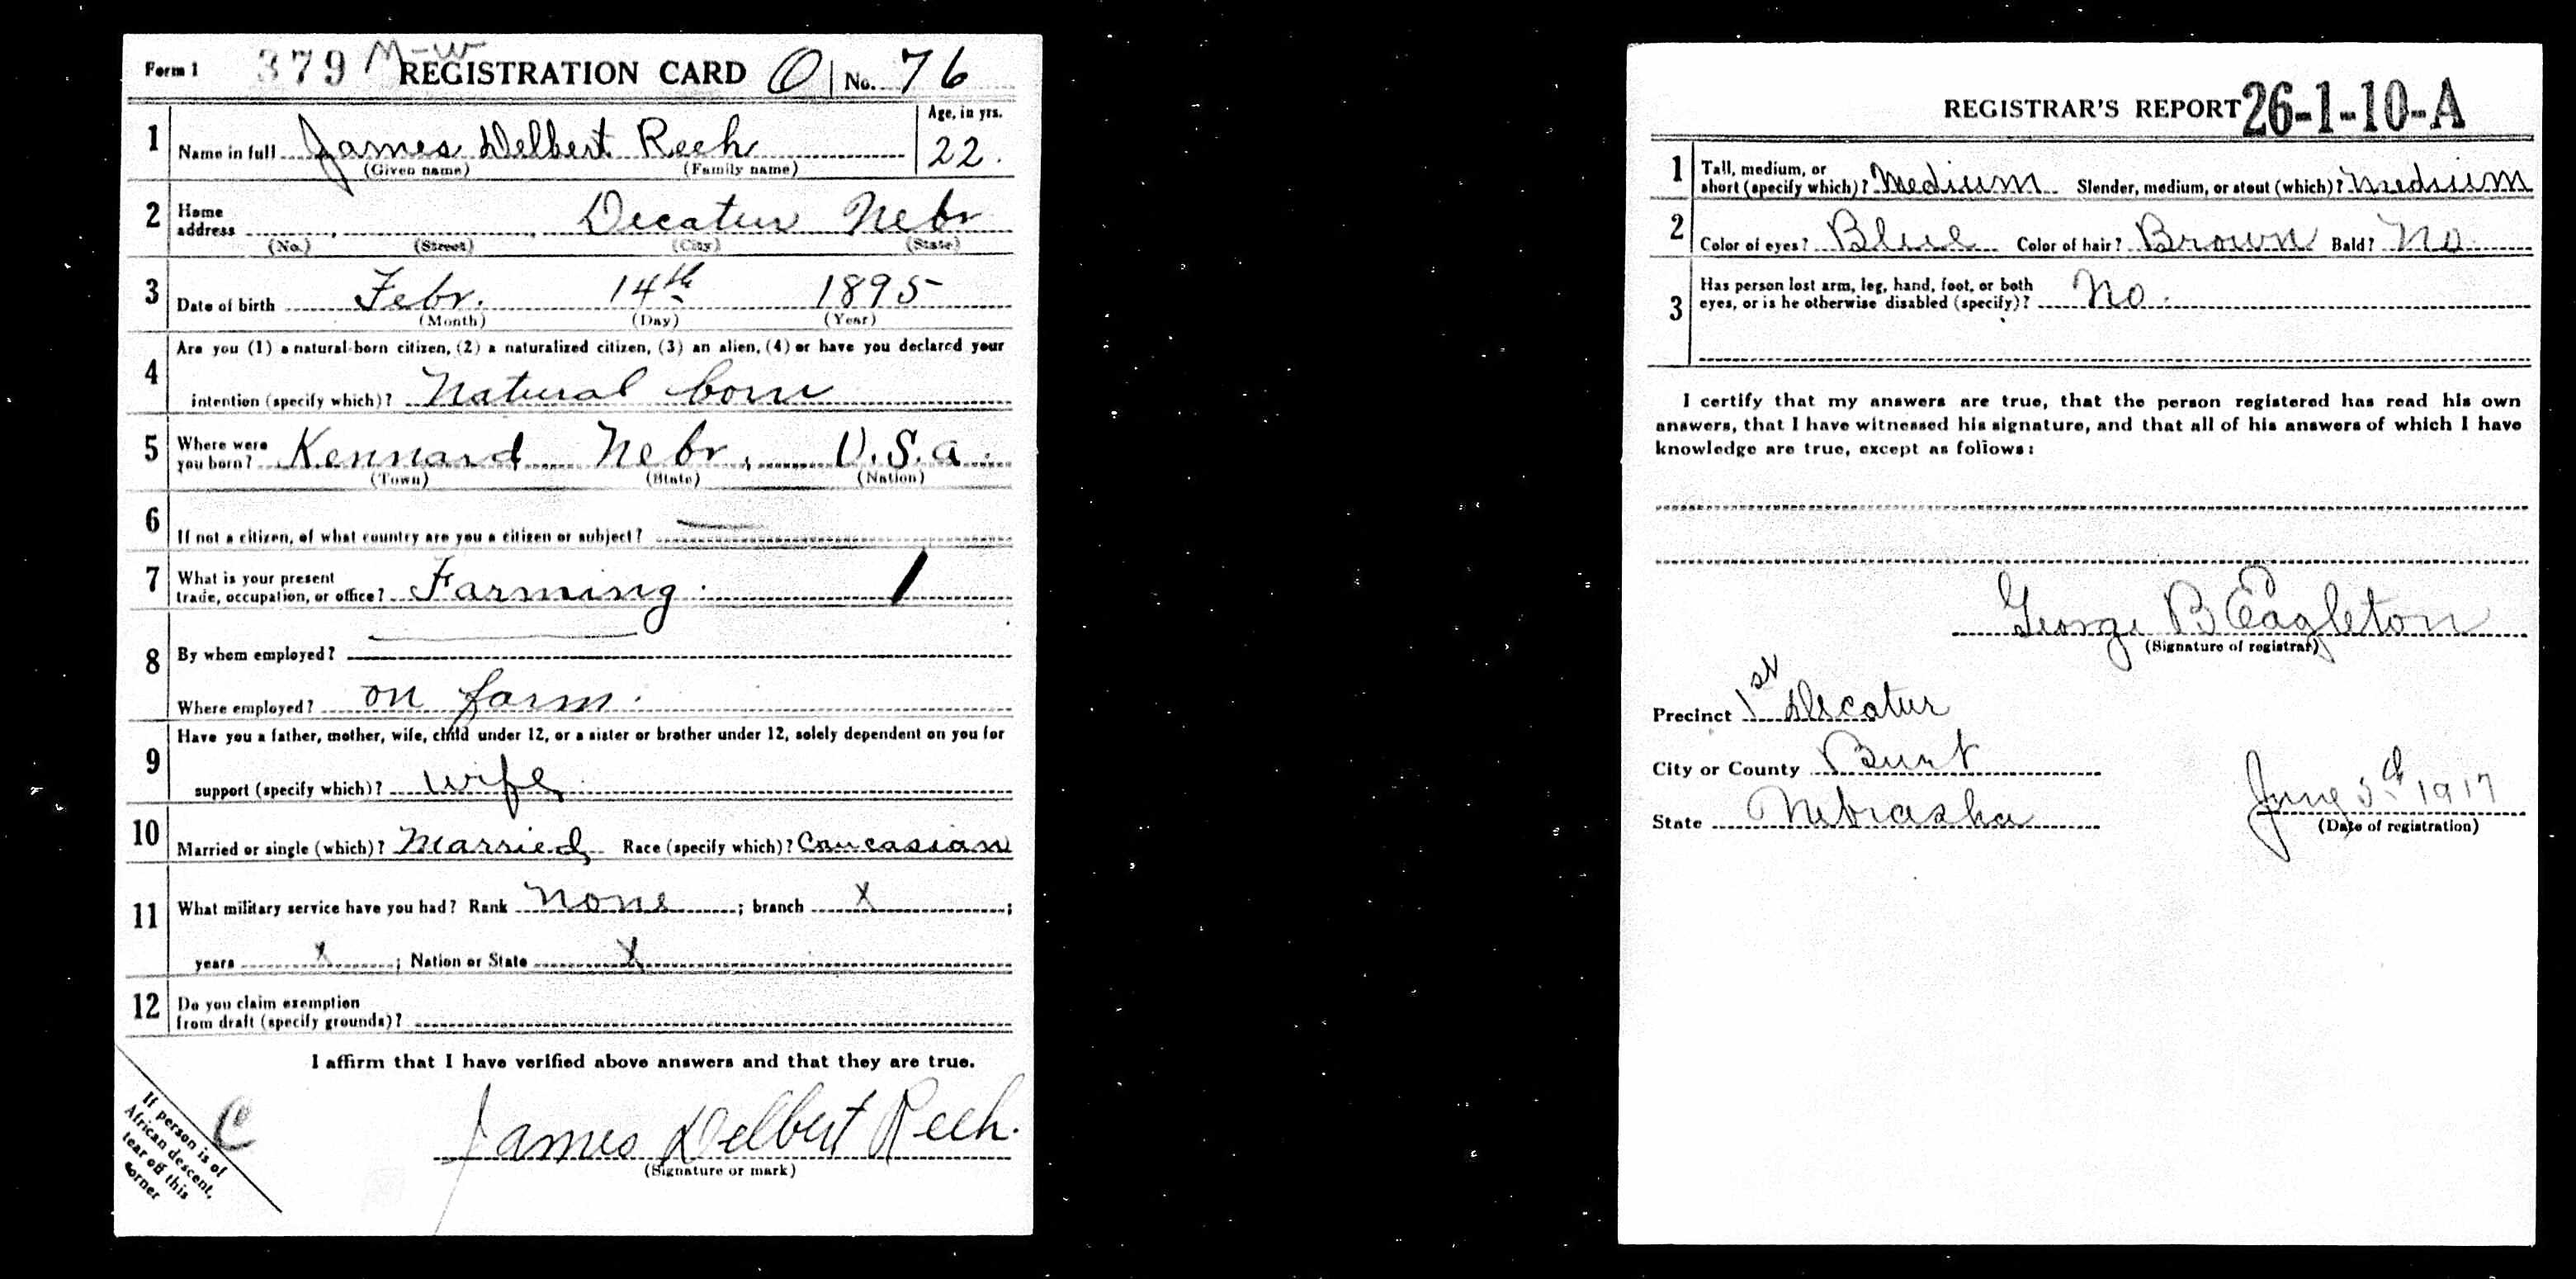 Form 1 379 M-W REGISTRATION CARD O No. 76
1 Name in full James Delbert Reeh Age, in yrs. 22.
(Given name) (Family name)
2 Home address Decatur Nebr
(No.) (Street) (City) (State)
3 Date of birth Febr. 14th 1895
(Month) (Day) (Year)
4 Are you (1) a natural-born citizen, (2) a naturalized citizen, (3) an alien, (4) or have you declared your
intention (specify which)? Natural born
5 Where were you born? Kennard Nebr. U.S.a.
(Town) (State) (Nation)
6 If not a citizen, of what country are you a citizen or subject?
7 What is your present
trade, occupation, or office? Farming. 1
8 By whom employed?
Where employed? on farm.
9 Have you a father, mother, wife, child under 12, or a sister or brother under 12, solely dependent on you for
support (specify which)? wife
10 Married or single (which)? Married Race (specify which)? Caucasian
11 What military service have you had? Rank none ; branch X ;
years X ; Nation or State X
12 Do you claim exemption
from draft (specify grounds)?
I affirm that I have verified above answers and that they are true.
James Delbert Reeh.
(Signature or mark)
If person is of
African descent,
tear off this
corner
C
REGISTRAR'S REPORT 26-1-10-A
1 Tall, medium, or
short (specify which)? Medium Slender, medium, or stout (which)? medium
2 Color of eyes? Blue Color of hair? Brown Bald? No
3 Has person lost arm, leg, hand, foot, or both
eyes, or is he otherwise disabled (specify)? No.
I certify that my answers are true, that the person registered has read his own
answers, that I have witnessed his signature, and that all of his answers of which I have
knowledge are true, except as follows:
George B Eagleton
(Signature of registrar)
Precinct 1st Decatur
City or County Burt
State Nebraska
June 5th 1917
(Date of registration)